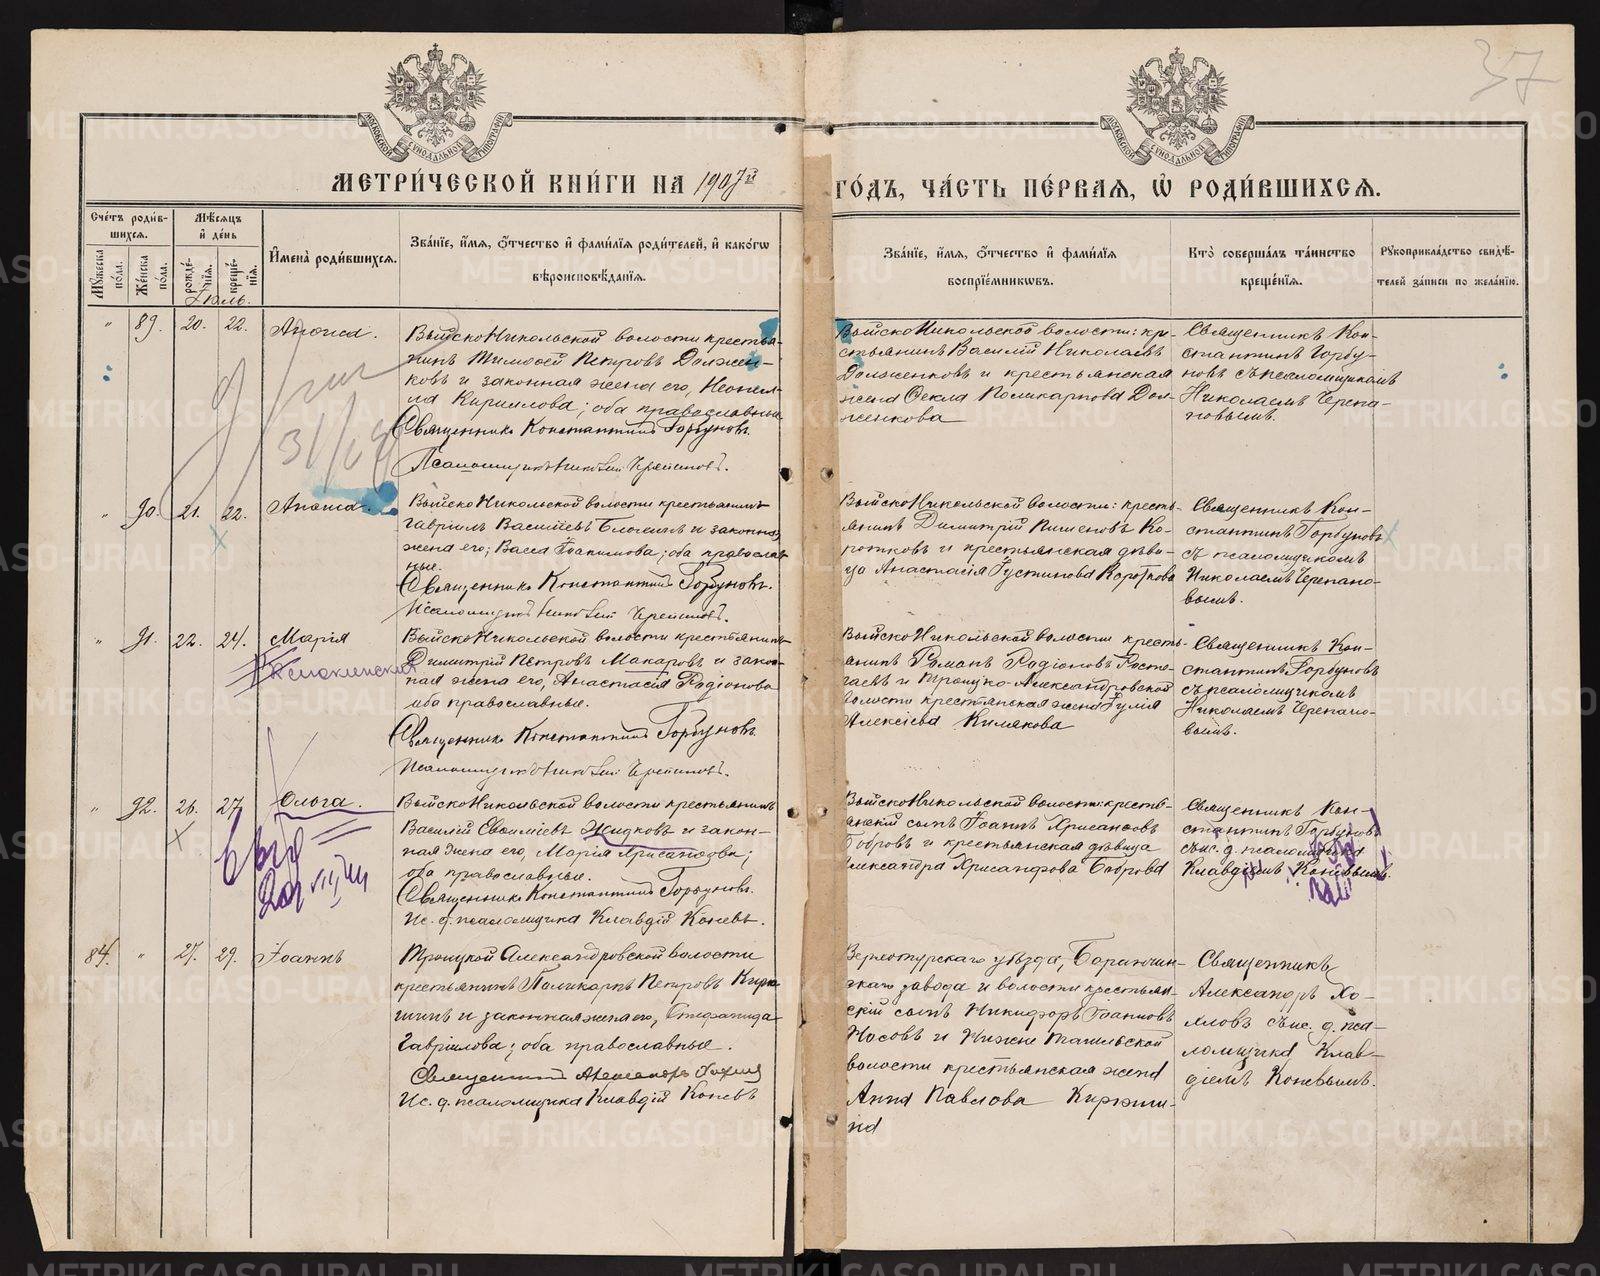 37
МОСКОВСКОЙ СѴНОДАЛЬНОЙ ТИПОГРАФІИ
МОСКОВСКОЙ СѴНОДАЛЬНОЙ ТИПОГРАФІИ
МЕТРИ́ЧЕСКОЙ КНИ́ГИ НА 1907й
ГО́ДЪ, ЧА́СТЬ ПЕ́РВАЯ, Ѡ҆ РОДИ́ВШИХСѦ.
Сче́тъ роди́в-
шихсѧ.
Мꙋ́жеска
по́ла.
Же́нска
по́ла.
Мѣ́сѧцъ
и҆ де́нь
рожде́-
нїѧ.
креще́-
нїѧ.
И҆мена̀ роди́вшихсѧ.
Зва́нїе, и҆́мѧ, ѻ҆́тчество и҆ фами́лїѧ роди́телей, и҆ како́гѡ
вѣроисповѣ́данїѧ.
Зва́нїе, и҆́мѧ, ѻ҆́тчество и҆ фами́лїѧ
воспрїе́мникѡвъ.
Кто̀ соверша́лъ та́инство
креще́нїѧ.
Рꙋкоприкла́дство свидѣ́-
телей за́писи по жела́нїю.
Іюль.
" 89. 20. 22.
Выйско Никольской волости крестья-
нинъ Тимофей Петровъ Должен-
ковъ и законная жена его, Неонил-
ла Кириллова; оба православные
Священникъ Константинъ Горбуновъ.
Псаломщикъ Николай Черепановъ.
Выйско Никольской волости: кре-
стьянинъ Василій Николаевъ
Долженковъ и крестьянская
жена Ѳекла Поликарпова Дол-
женкова
Священникъ Кон-
стантинъ Горбу-
новъ съ псаломщикомъ
Николаемъ Черепа-
новымъ.
31/
" 90. 21. 22.
Выйско Никольской волости крестьянинъ
Гавріилъ Васильевъ и законная
жена его, Васса Іоакимова; оба православ-
ные.
Священникъ Константинъ Горбуновъ.
Псаломщикъ Николай Черепановъ.
Выйско Никольской волости: кресть-
янинъ Димитрій Пименовъ Ко-
ротковъ и крестьянская дѣви-
ца Анастасія Іустинова Короткова
Священникъ Кон-
стантинъ Горбуновъ
съ псаломщикомъ
Николаемъ Черепано-
вымъ.
" 91. 22. 24. Марія
Выйско Никольской волости крестьянинъ
Димитрій Петровъ Макаровъ и закон-
ная жена его, Анастасія Родіонова
оба православные.
Священникъ Константинъ Горбуновъ.
Псаломщикъ Николай Черепановъ.
Выйско Никольской волости кресть-
янинъ Романъ Родіоновъ
и Троицко-Александровской
волости крестьянская жена Іулія
Алексіева
Священникъ Кон-
стантинъ Горбуновъ
съ псаломщикомъ
Николаемъ Черепано-
вымъ.
" 92. 26. 27. Ольга.
Выйско Никольской волости крестьянинъ
Василій Евѳиміевъ Жидковъ и закон-
ная жена его, Марія Хрисанѳова;
оба православные.
Священникъ Константинъ Горбуновъ.
Ис. д. псаломщика Клавдій Коневъ.
Выйско Никольской волости: кресть-
янскій сынъ Іоаннъ Хрисанѳовъ
Бобровъ и крестьянская дѣвица
Александра Хрисанѳова Боброва
Священникъ Кон-
стантинъ Горбуновъ
съ ис. д. псаломщика
Клавдіемъ Коневымъ.
84. " 27. 29. Іоаннъ
Троицкой Александровской волости
крестьянинъ Поликарпъ Петровъ Кирю-
шинъ и законная жена его, Стефанида
Гавріилова; оба православные.
Священникъ Александръ Хохловъ
Ис. д. псаломщика Клавдій Коневъ
Верхотурскаго уѣзда, Баранчин-
скаго завода и волости крестьян-
скій сынъ Никифоръ Іоанновъ
Носовъ и Нижне Тагильской
волости крестьянская жена
Анна Павлова Кирюши-
на
Священникъ
Александръ Хо-
хловъ съ ис. д. пса-
ломщика Клав-
діемъ Коневымъ.
METRIKI.GASO-URAL.RU